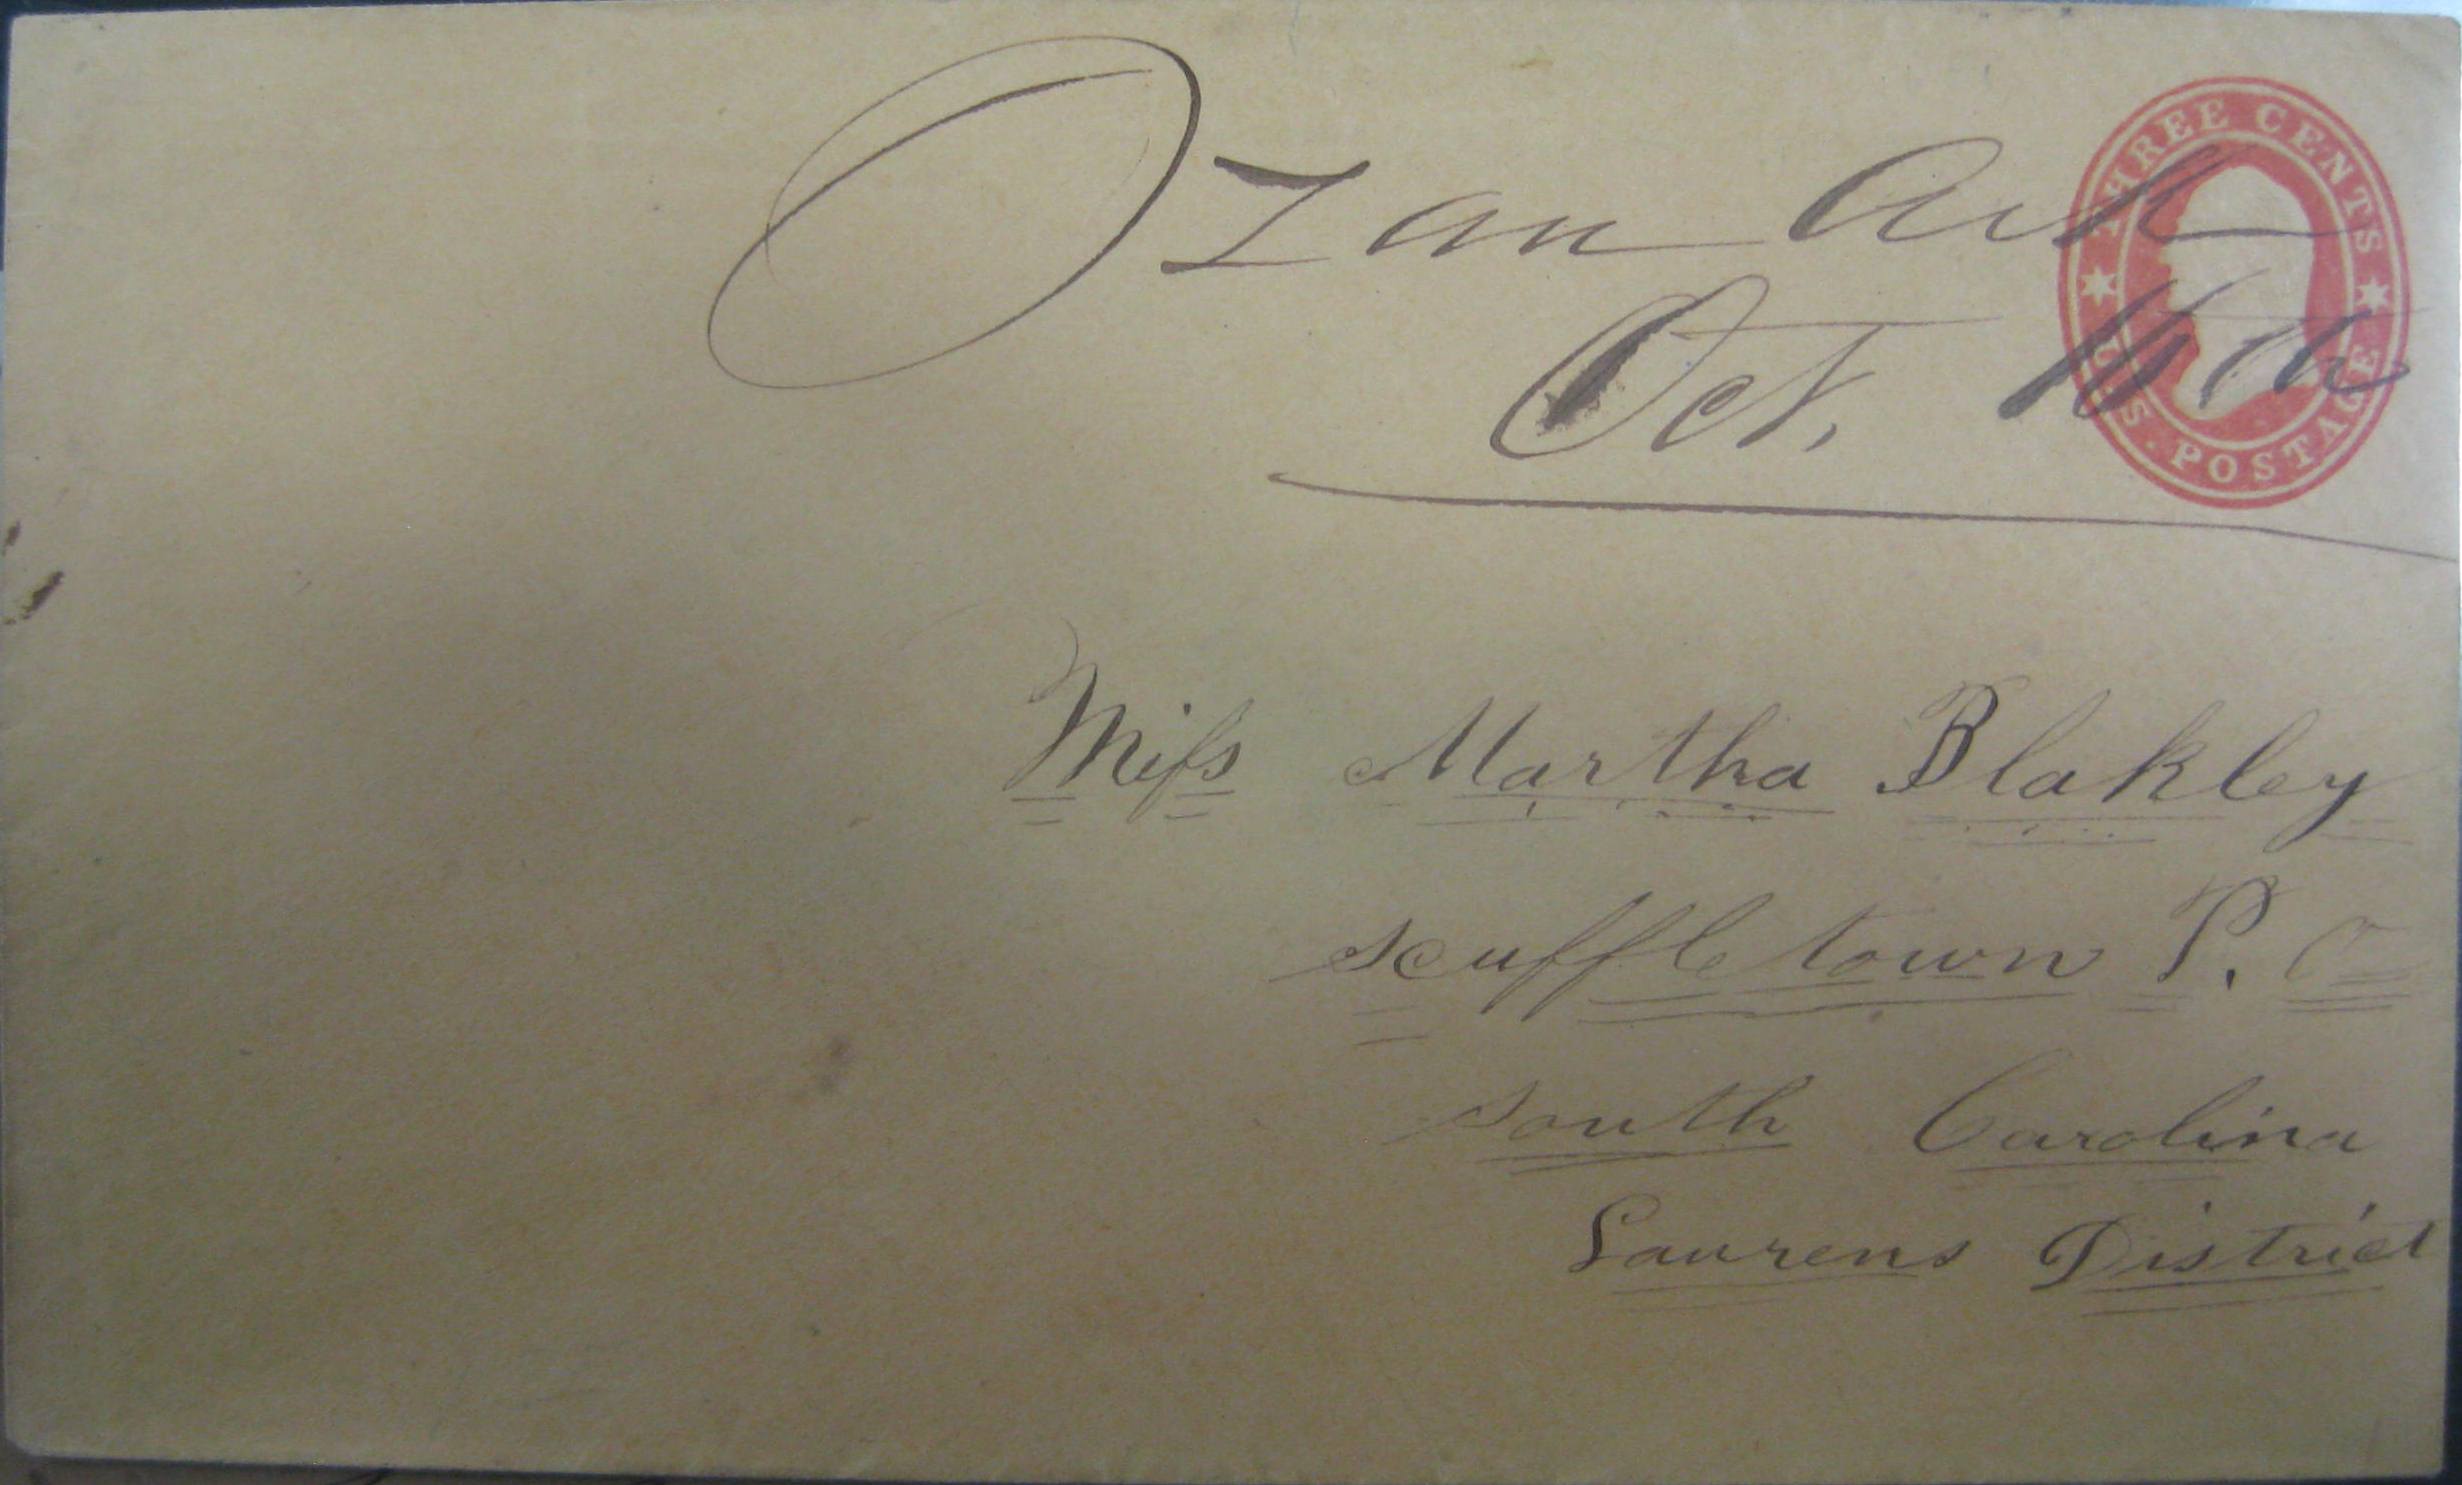 Ozan Ark
Oct. 16th
THREE CENTS
U.S. POSTAGE
Miſs Martha Blakley
scuffletown P. O
south Carolina
Laurens District